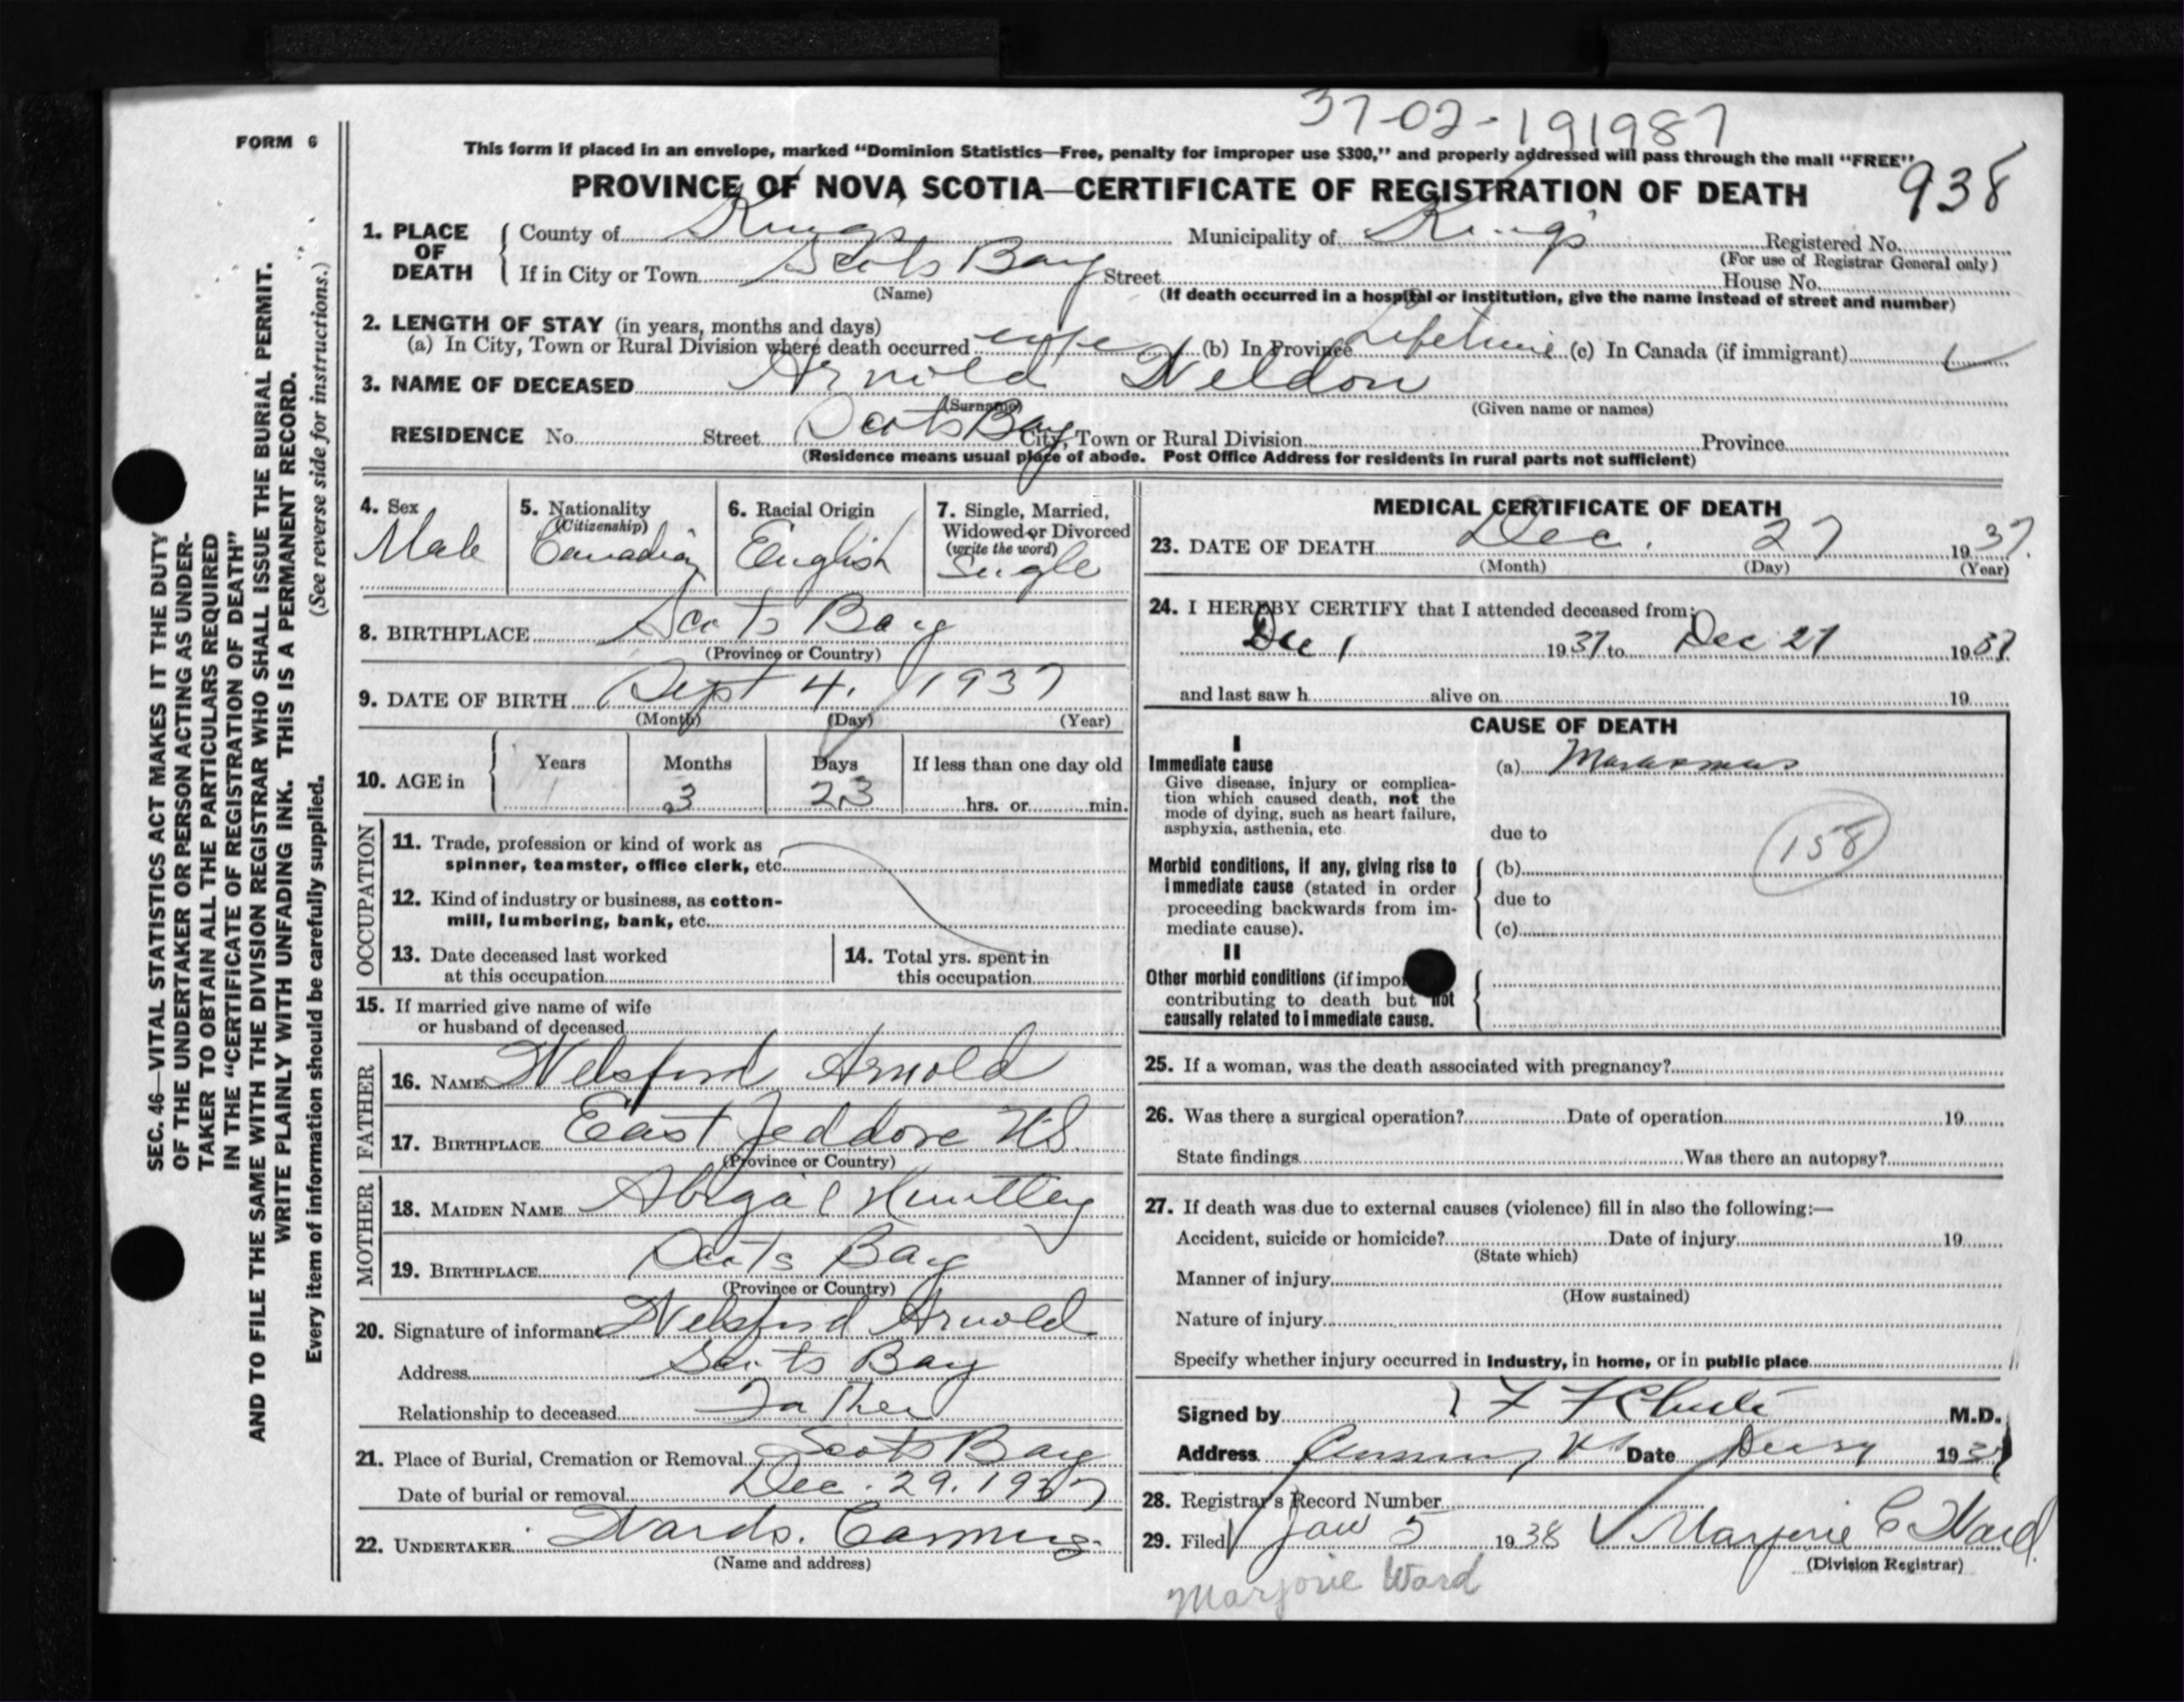 37-02-191987
FORM 6
This form if placed in an envelope, marked "Dominion Statistics—Free, penalty for improper use $300," and properly addressed will pass through the mail "FREE"
938
PROVINCE OF NOVA SCOTIA—CERTIFICATE OF REGISTRATION OF DEATH
1. PLACE OF DEATH { County of Kings Municipality of Kings Registered No.
(For use of Registrar General only)
If in City or Town Scots Bay Street House No.
(Name) (If death occurred in a hospital or institution, give the name instead of street and number)
2. LENGTH OF STAY (in years, months and days)
(a) In City, Town or Rural Division where death occurred life (b) In Province Lifetime (c) In Canada (if immigrant)
3. NAME OF DECEASED Arnold Weldon
(Surname) (Given name or names)
RESIDENCE No. Street Scots Bay City, Town or Rural Division Province
(Residence means usual place of abode. Post Office Address for residents in rural parts not sufficient)
4. Sex
Male
5. Nationality
(Citizenship)
Canadian
6. Racial Origin
English
7. Single, Married,
Widowed or Divorced
(write the word)
Single
8. BIRTHPLACE Scots Bay
(Province or Country)
9. DATE OF BIRTH Sept 4, 1937
(Month) (Day) (Year)
10. AGE in { Years Months Days If less than one day old
3 23 hrs. or min.
OCCUPATION
11. Trade, profession or kind of work as
spinner, teamster, office clerk, etc.
12. Kind of industry or business, as cotton-
mill, lumbering, bank, etc.
13. Date deceased last worked
at this occupation
14. Total yrs. spent in
this occupation
15. If married give name of wife
or husband of deceased
FATHER
16. NAME Welsford Arnold
17. BIRTHPLACE East Jeddore N.S.
(Province or Country)
MOTHER
18. MAIDEN NAME Abigail Huntley
19. BIRTHPLACE Scots Bay
(Province or Country)
20. Signature of informant Welsford Arnold
Address Scots Bay
Relationship to deceased Father
21. Place of Burial, Cremation or Removal Scots Bay
Date of burial or removal Dec. 29. 1937
22. UNDERTAKER Wards. Canning.
(Name and address)
MEDICAL CERTIFICATE OF DEATH
23. DATE OF DEATH Dec. 27 1937.
(Month) (Day) (Year)
24. I HEREBY CERTIFY that I attended deceased from:
Dec 1 1937 to Dec 27 1937
and last saw h alive on 19
CAUSE OF DEATH
I
Immediate cause
Give disease, injury or complica-
tion which caused death, not the
mode of dying, such as heart failure,
asphyxia, asthenia, etc.
(a) Marasmus
due to
158
Morbid conditions, if any, giving rise to
immediate cause (stated in order
proceeding backwards from im-
mediate cause).
(b)
due to
(c)
II
Other morbid conditions (if impor
contributing to death but not
causally related to immediate cause.
25. If a woman, was the death associated with pregnancy?
26. Was there a surgical operation? Date of operation 19
State findings Was there an autopsy?
27. If death was due to external causes (violence) fill in also the following:—
Accident, suicide or homicide? Date of injury 19
(State which)
Manner of injury
(How sustained)
Nature of injury
Specify whether injury occurred in industry, in home, or in public place
Signed by M.D.
Address Canning NS Date 193
28. Registrar's Record Number
29. Filed Jan 5 1938 Marjorie C Ward
(Division Registrar)
Marjorie Ward
SEC. 46—VITAL STATISTICS ACT MAKES IT THE DUTY
OF THE UNDERTAKER OR PERSON ACTING AS UNDER-
TAKER TO OBTAIN ALL THE PARTICULARS REQUIRED
IN THE "CERTIFICATE OF REGISTRATION OF DEATH"
AND TO FILE THE SAME WITH THE DIVISION REGISTRAR WHO SHALL ISSUE THE BURIAL PERMIT.
WRITE PLAINLY WITH UNFADING INK. THIS IS A PERMANENT RECORD.
Every item of information should be carefully supplied. (See reverse side for instructions.)